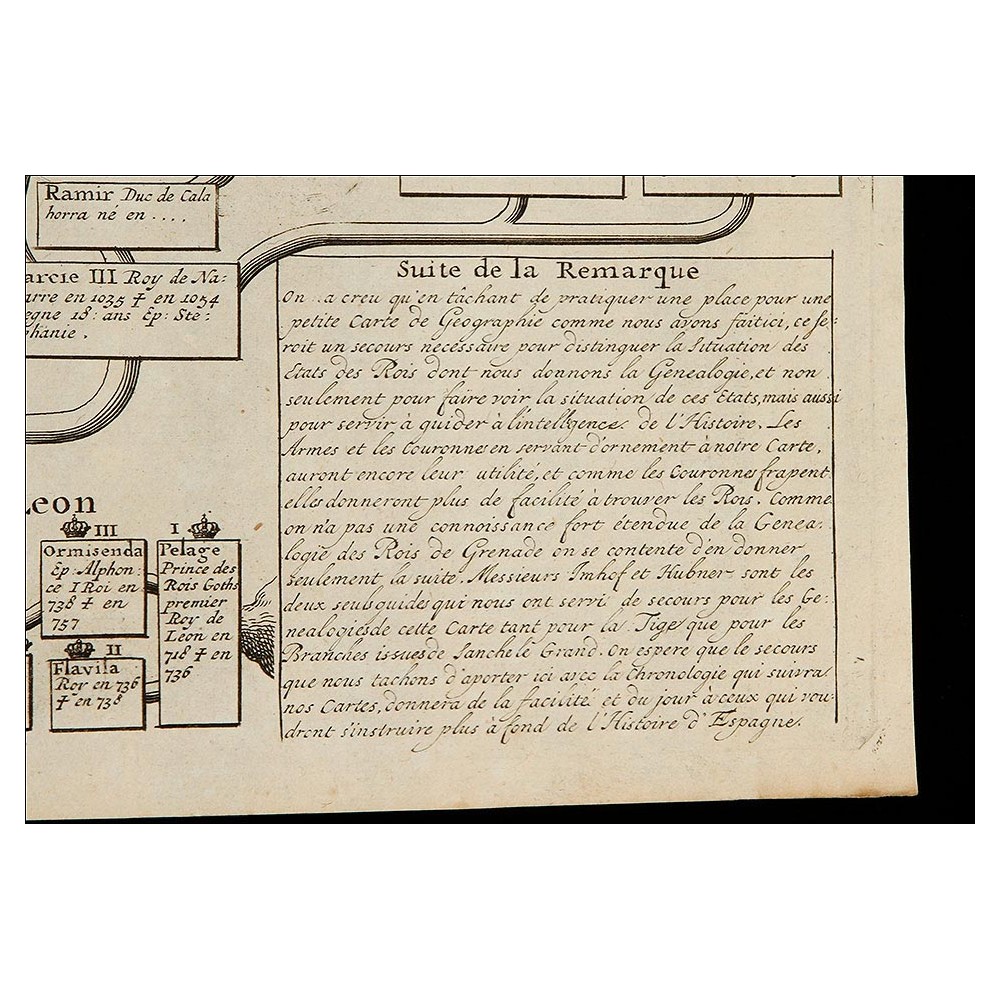 Ramir Duc de Cala
horra né en ....
arcie III Roy de Na:
arre en 1035 ‡ en 1054
egne 18: ans Ep: Ste:
hanie.
Leon
III
Ormisenda
Ep: Alphon:
ce I Roi en
738 ‡ en
757
II
Flavila
Roy en 736
‡ en 738
I
Pelage
Prince des
Rois Goths
premier
Roy de
Leon en
718 ‡ en
736
Suite de la Remarque
On a creu qu'en tâchant de pratiquer une place pour une
petite Carte de Geographie comme nous avons fait ici, ce se:
roit un secours necessaire pour distinguer la Situation des
Etats des Rois dont nous donnons la Genealogie, et non
seulement pour faire voir la situation de ces Etats, mais aussi
pour servir à guider à l'intelligence de l'Histoire. Les
Armes et les Couronnes en servant d'ornement à notre Carte,
auront encore leur utilité, et comme les Couronnes frapent
elles donneront plus de facilité à trouver les Rois. Comme
on n'a pas une connoissance fort étendue de la Genea:
logie des Rois de Grenade on se contente d'en donner
seulement la suite. Messieurs Imhof et Hubner sont les
deux seuls guides qui nous ont servi de secours pour les Ge:
nealogies de cette Carte tant pour la Tige que pour les
Branches issues de Sanche le Grand. On espere que le secours
que nous tachons d'aporter ici avec la Chronologie qui suivra
nos Cartes, donnera de la facilité et du jour à ceux qui vou:
dront s'instruire plus à fond de l'Histoire d'Espagne.